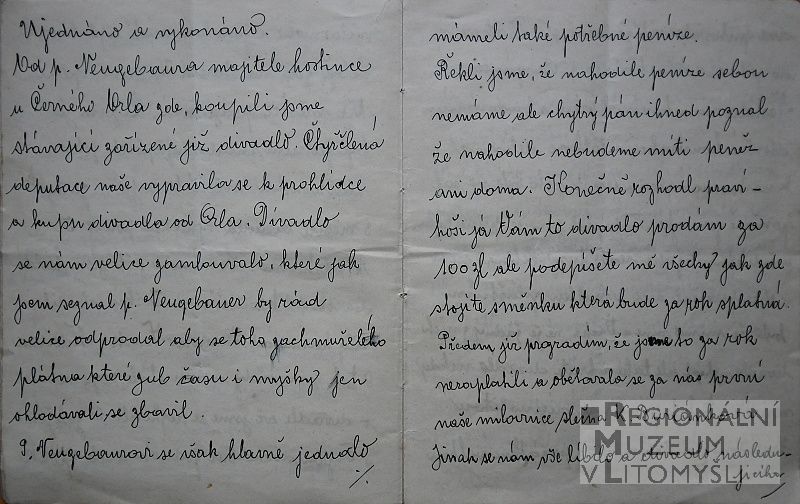 Ujednáno a vykonáno.
Od p. Neugebaura majitele hostince
u Černého Orla zde, koupili jsme
stávající zařízené již divadlo. Čtyřčlená
deputace naše vypravila se k prohlídce
a kupu divadla od Orla. Divadlo
se nám velice zamlouvalo, které jak
jsem seznal p. Neugebauer by rád
velice odprodal aby se toho zachmuřelého
plátna které zub času i myšky jen
ohlodávali, se zbavil.
P. Neugebaurovi se však hlavně jednalo
./.
mámeli také potřebné peníze.
Řekli jsme, že nahodile peníze sebou
nemáme ale chytrý pán ihned poznal
že nahodile nebudeme míti peněz
ani doma. Konečně rozhodl praví –
hoši já Vám to divadlo prodám za
100 zl ale podepíšete mě všechy jak zde
stojíte směnku která bude za rok splatná.
Předem již prozradím, že jsme to za rok
nezaplatili a obětovala se za nás první
naše milovnice slečna K. Durťánková
Jinak se nám vše líbilo a divadlo následu-
jícího
REGIONÁLNÍ
MUZEUM
V LITOMYŠLI